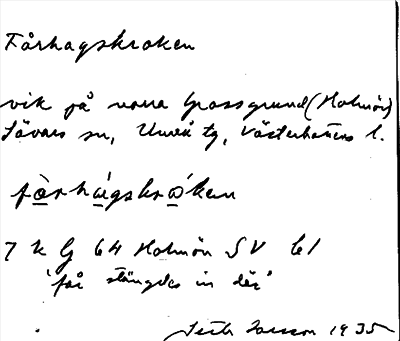 Fårhagskroken
vik på norra Grossgrund (Holmön)
Sävars sn, Umeå tg, Västerbottens l.
fò̲rhá̲gskrò̲ken
7 k G 64 Holmön SV b1
"får stängdes in där"
Larsson 1935